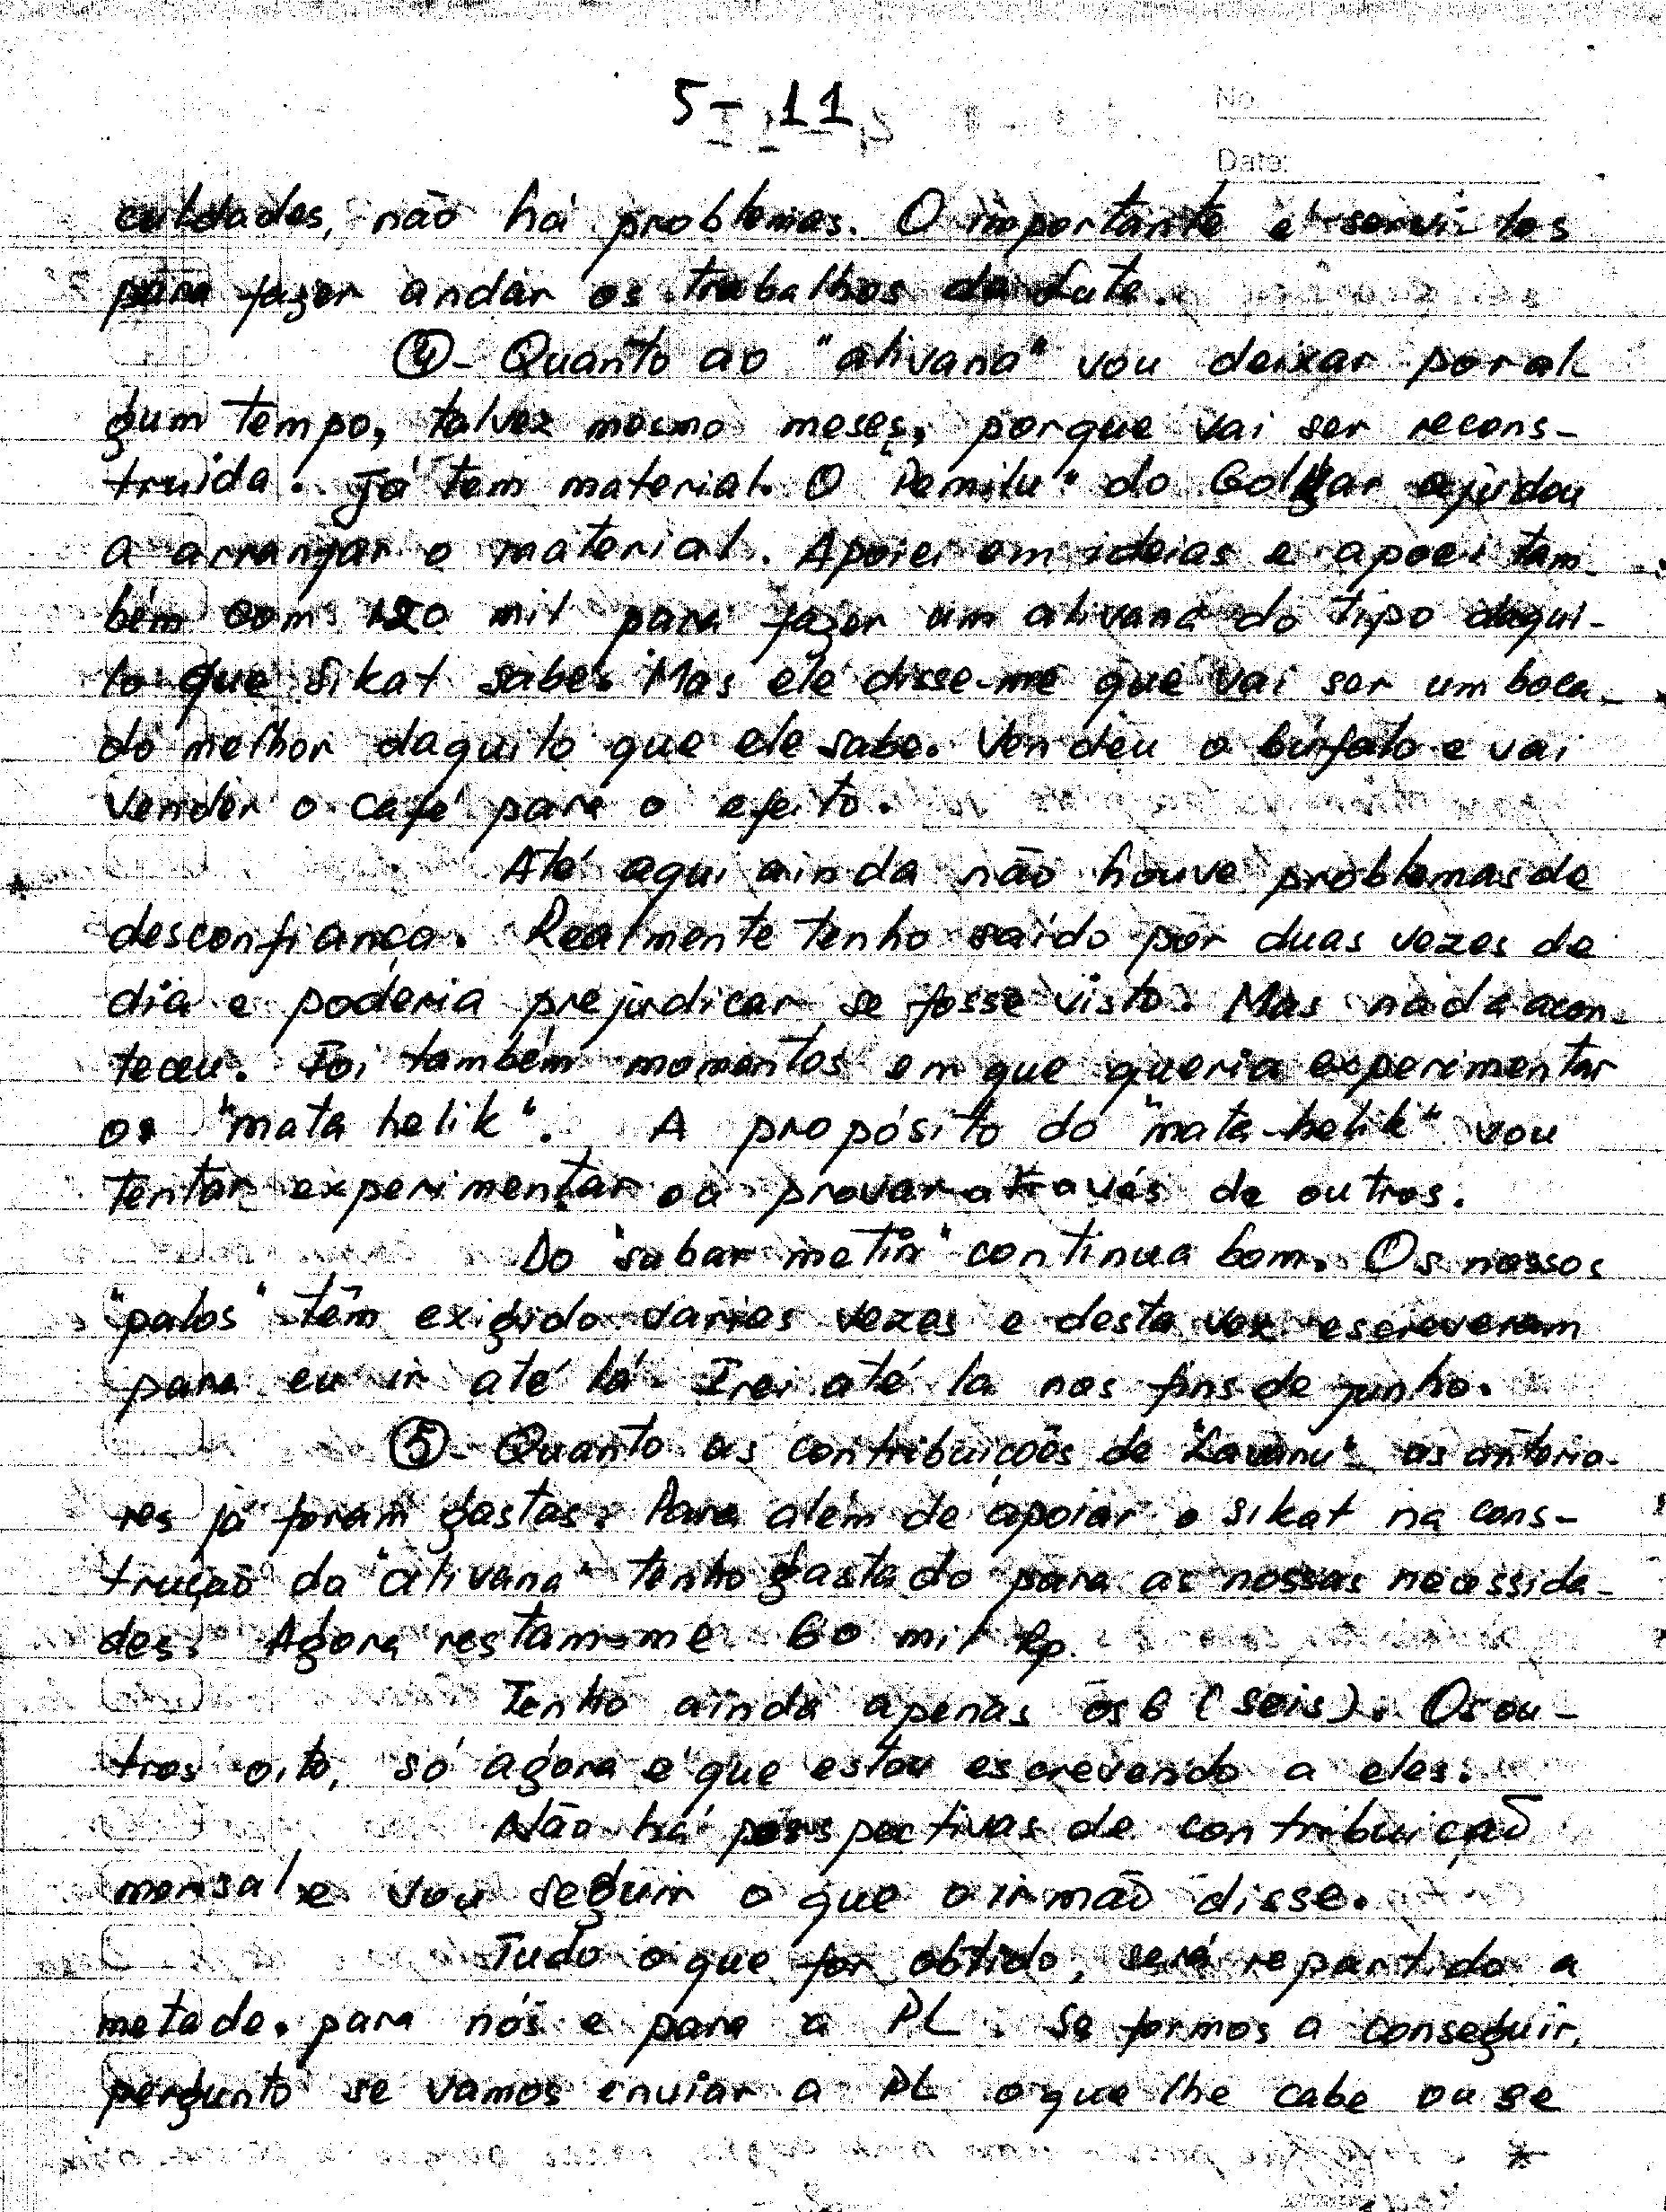 5-11
No.
Date:
culdades, não há problemas. O importante é servi-los
para fazer andar os trabalhos da Luta.
④- Quanto ao "ahivana" vou deixar por al
gum tempo, talvez mesmo meses, porque vai ser recons-
truída. Já tem material. O "Pemilu" do Golkar ajudou
a arranjar o material. Apoiei em ideias e apoei tam-
bém com 120 mil para fazer um ahivana do tipo daqui-
lo que Sikat sabe. Mas ele disse-me que vai ser um boca-
do melhor daquilo que ele sabe. Vendeu o búfalo e vai
vender o café para o efeito.
Até aqui ainda não houve problemas de
desconfiança. Realmente tenho saído por duas vezes de
dia e poderia prejudicar se fosse visto. Mas nada acon-
teceu. Foi também momentos em que queria experimentar
os "mata helik". A propósito do "mata-helik" vou
tentar experimentar ou provar através de outros.
Do "sabar metin" continua bom. Os nossos
"palos" têm exigido varias vezes e desta vez escreveram
para eu ir até lá. Irei até la nos fins de junho.
⑤- Quanto as contribuições de "Lavanu" as anterio-
res já foram gastas. Para além de apoiar o sikat na cons-
trução da "ahivana" tenho gastado para as nossas necessida-
des. Agora restam-me 60 mil Rp.
Tenho ainda apenas os 6 (seis). Os ou-
tros oito, só agora é que estou escrevendo a eles.
Não há perspectivas de contribuição
mensal e vou seguir o que o irmão disse.
Tudo o que for obtido, será repartido a
metade. para nós e para a PL. Se formos a conseguir,
pergunto se vamos enviar a PL o que lhe cabe ou se